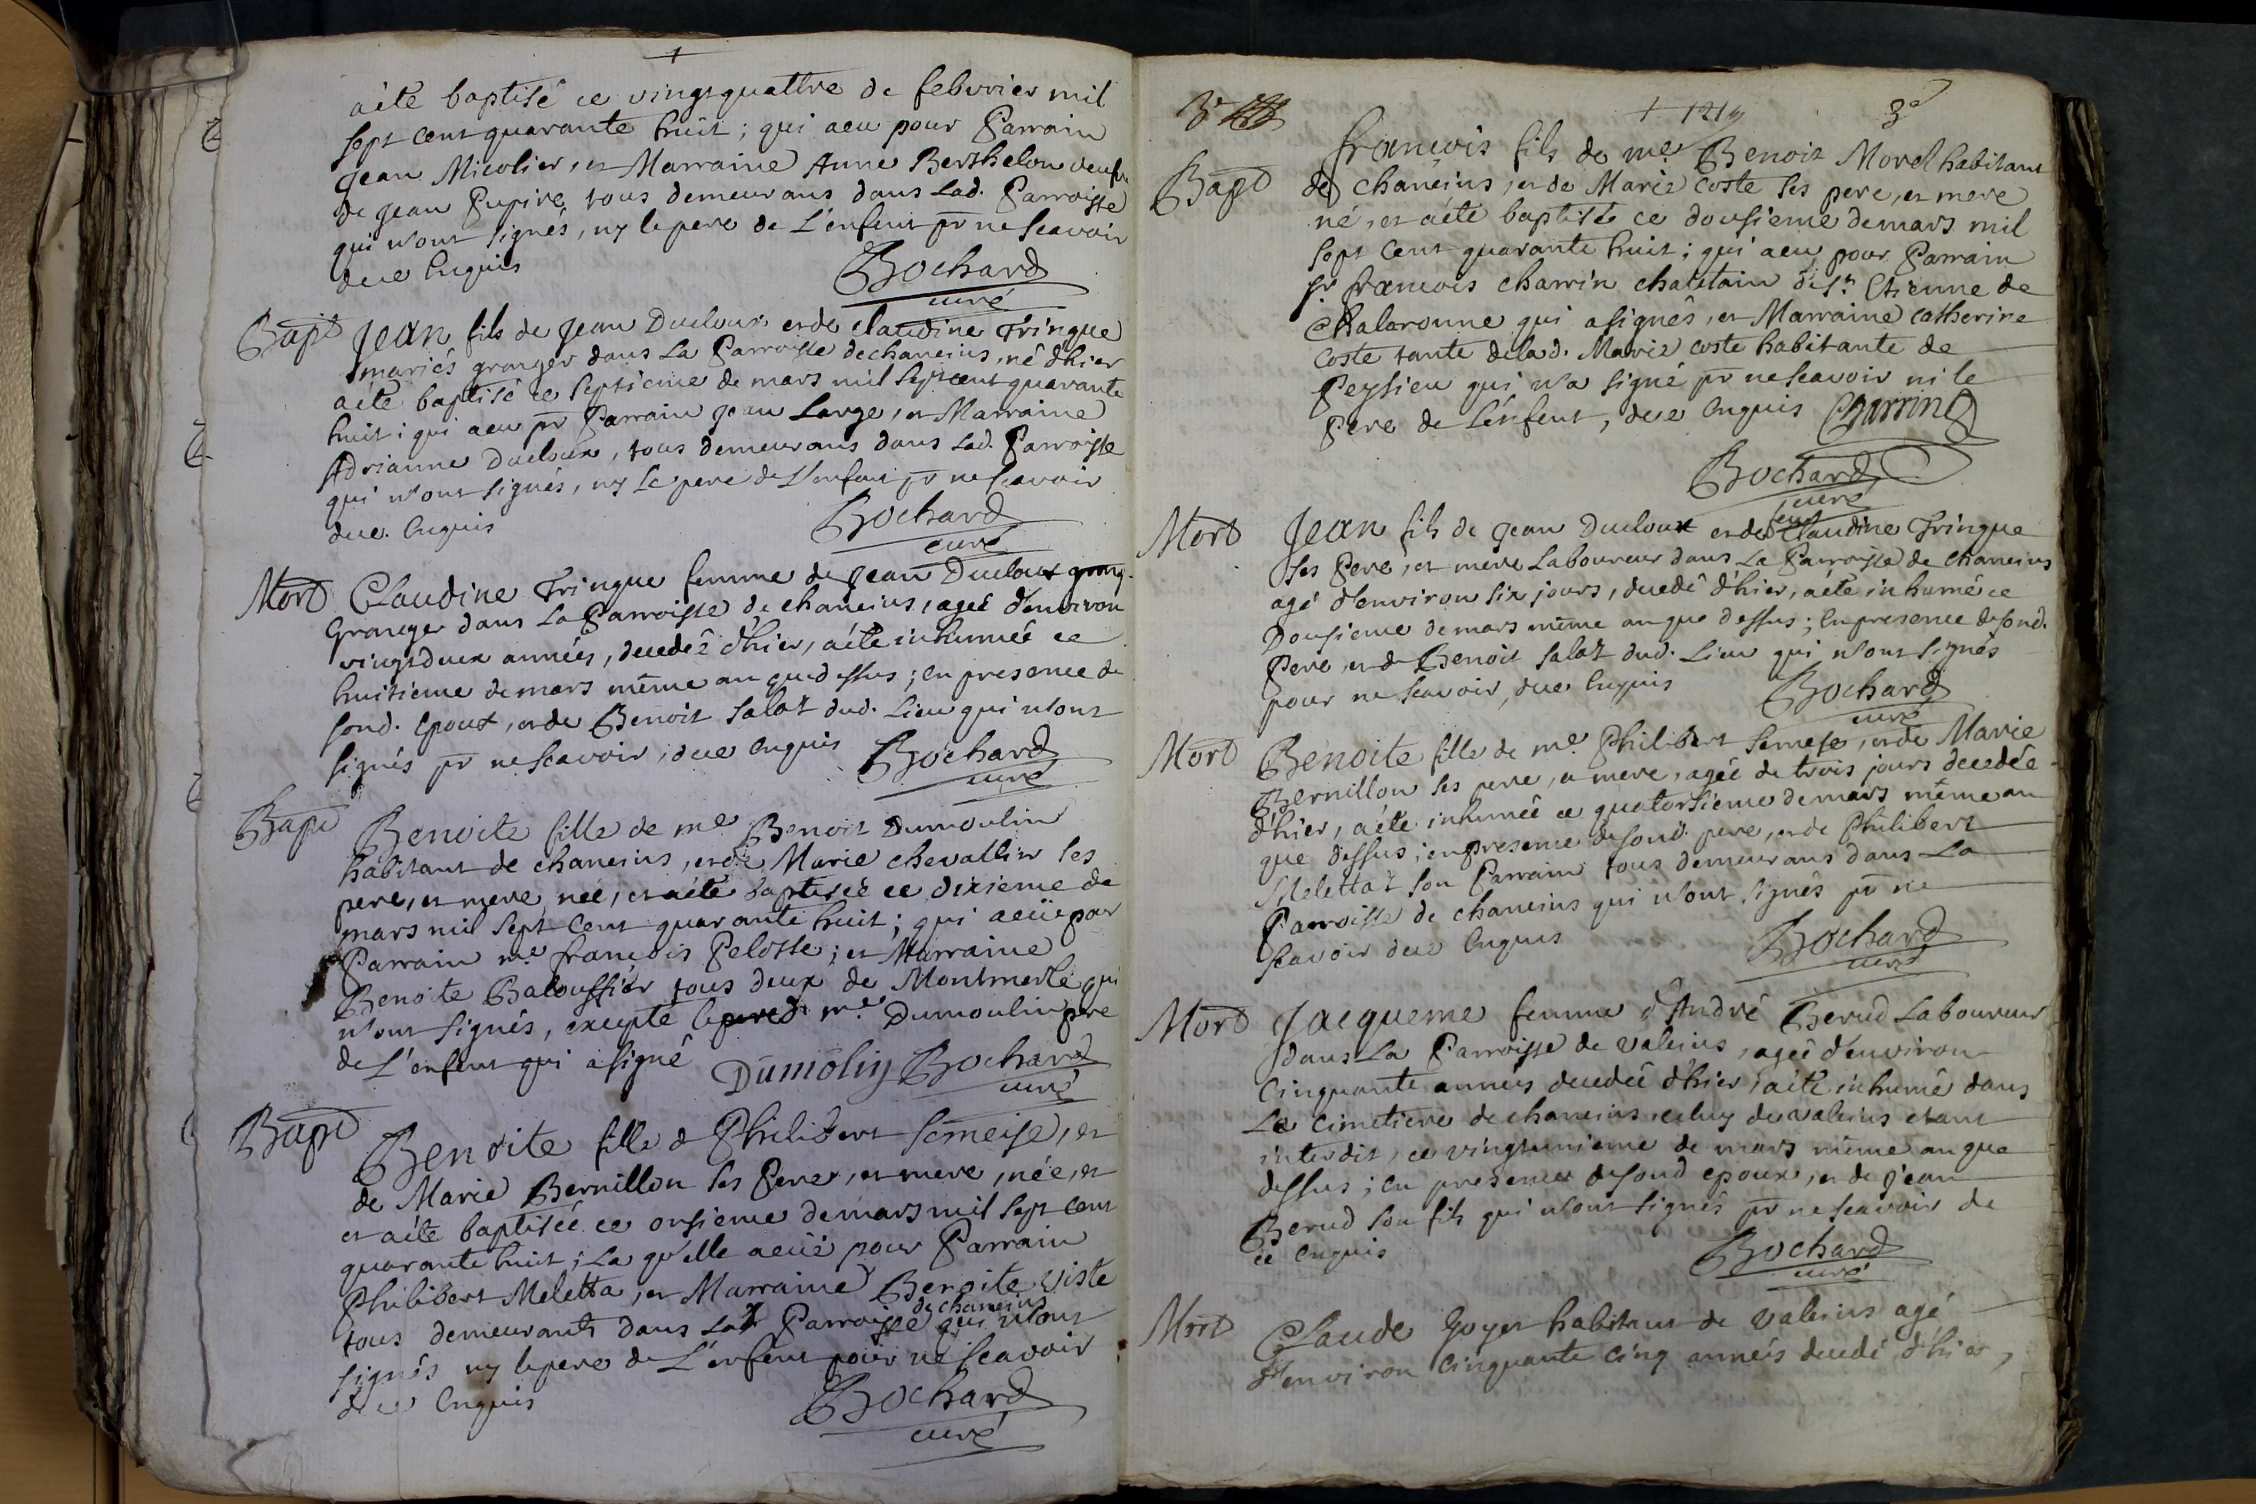 aété baptisé ce vingtquattre de febvrier mil
sept cent quarante huit ; qui aeu pour Parrain
Jean Micolier, et Marraine Anne Berthelon veufve
de Jean Pupire tous demeurans dans lad. Parroisse
qui n'ont signés, ny le pere de L'enfent pr ne scavoir
de ce Enquis
Bochard
curé
Bapt Jean fils de Jean Ducloux et de Claudine Tringue
mariés granger dans La Parroisse de chaneins, né d'hier
aété baptisé ce septieme de mars mil sept cent quarante
huit ; qui aeu pr Parrain Jean Large, et Marraine
Adrianne Ducloux, tous demeurans dans Lad. Parroisse
qui n'ont signés, ny Le pere de L'enfent pr ne scavoir
de ce Enquis
Bochard
curé
Mort Claudine Tringue femme de Jean Ducloux
Granger dans La Parroisse de chaneins, ageé d'environ
vingtdeux années, decedeé d'hier, aété inhumeé ce
huitieme de mars même an que dessus ; En presence de
sond. Epoux, et de Benoit Salaz dud. Lieu qui n'ont
signés pr ne scavoir, de ce Enquis
Bochard
curé
Bapt Benoite fille de me Benoit Dumoulin
habitant de chaneins, et de Marie chevallier ses
pere, et mere neé, et aété baptiseé ce dixieme de
mars mil sept cent quarante huit ; qui aeüe pour
Parrain me françois Pelosse ; et Marraine
Benoite Baloussier tous deux de Montmerle qui
n'ont signés, excepté me Dumoulin pere
de L'enfent qui asigné
Dumolin Bochard
curé
Bapt Benoite fille de Philibert Semeise, et
de Marie Bernillon ses Pere, et mere, née, et
et aété baptiseé ce onsieme de mars mil sept cent
quarante huit ; La qu'elle aeüe pour Parrain
Philibert Meletta, et Marraine Benoite Viste
de chaneins
tous demeurants dans La Parroisse qui n'ont
signés ny le pere de L'enfent pour ne scavoir
de ce Enquis
Bochard
curé
3e
françois fils de me Benoit Morel habitant
Bapt de chaneins, et de Marie Coste ses pere, et mere
né, et aété baptisé ce dousieme de mars mil
sept cent quarante huit ; qui aeu pour Parrain
sr françois charrin chatelain de St Etienne de
Chalaronne qui asignés, et Marraine Catherine
Coste tante de lad. Marie Coste habitante de
Peysieu qui n'a signé pr ne scavoir ni le
Pere de L'énfent, de ce Enquis Charrin
Bochard
curé
feue
Mort Jean fils de Jean Ducloux et de Claudine Tringue
ses Pere, et mere Laboureur dans La Parroisse de Chaneins
agé d'environ six jours, decedé d'hier, aété inhumé ce
Dousieme de mars même an que dessus ; En presence de sond.
Pere, et de Benoit Salaz dud. Lieu qui n'ont signés
pour ne scavoir, de ce Enquis
Bochard
curé
Mort Benoite fille de me Philibert Semese, et de Marie
Bernillon ses pere, et mere, ageé de trois jours decedée
d'hier, aété inhumeé ce quatorsieme de mars même an
que dessus ; en presence de sond. pere, et de Philibert
Melettaz son Parrain tous demeurans dans La
Parroisse de chaneins qui n'ont signés pr ne
scavoir de ce Enquis
Bochard
curé
Mort Jacqueme femme d'André Berud Laboureur
dans La Parroisse de valeins, ageé d'environ
Cinquante années decedeé d'hier, aété inhumé dans
Le Cimetiere de chaneins, celuy de valeins etant
interdit, ce vingtunieme de mars même an que
dessus ; En presence de sond epoux, et de Jean
Berud son fils qui n'ont signés pr ne scavoir de
ce Enquis
Bochard
curé
Mort Claude Goyet habitant de Valeins agé
d'environ Cinquante cinq années decedé d'hier,